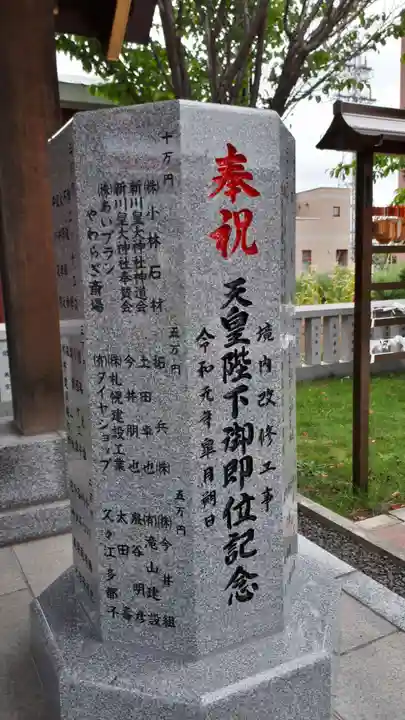 奉祝
天皇陛下御即位記念
境内改修工事
令和元年皐月朔日
十万円
㈱小林石材
新川皇大神社神道会
新川皇大神社奉賛会
㈱あいプラン
やわらぎ斎場
五万円
拓兵㈱
土田幸也
今井朋也
㈱札幌建設工業
㈲ダイヤショップ
五万円
㈱今井組
㈲滝山建設
殿谷明彦
太田壽
久々江多都子